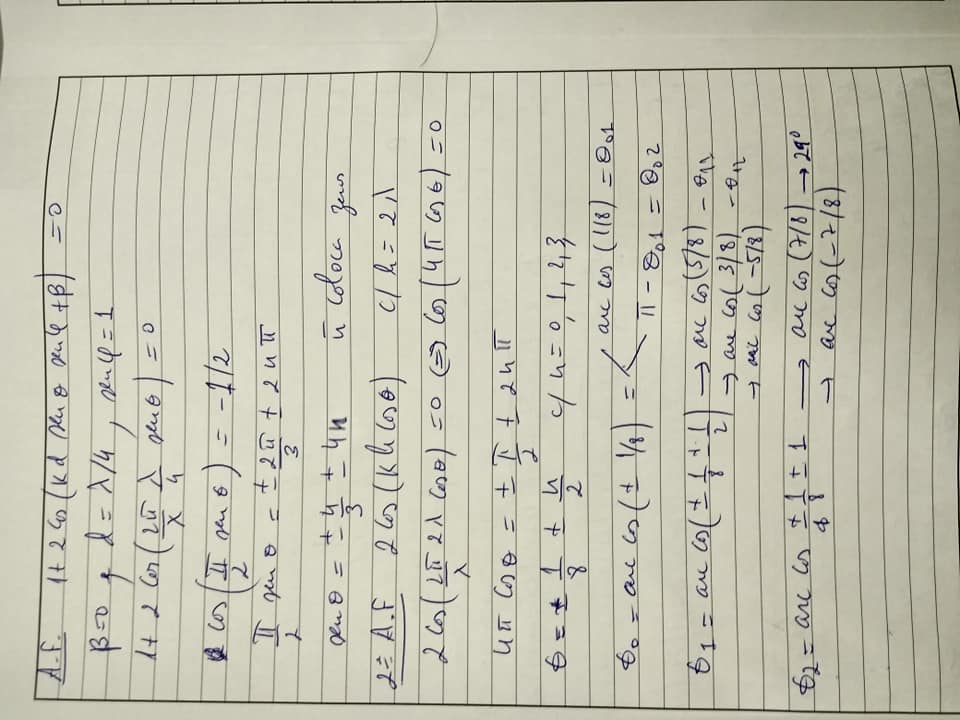 A.F. 1 + 2 cos(Kd sen θ sen φ + β) = 0
β=0, d = λ/4, sen φ = 1
1 + 2 cos(2π/λ λ/4 sen θ) = 0
cos(π/2 sen θ) = -1/2
π/2 sen θ = ± 2π/3 ± 2nπ
sen θ = ± 4/3 ± 4n ñ coloca zeros
2º A.F 2 cos(Kh cos θ) c/ h = 2λ
2 cos(2π/λ 2λ cos θ) = 0 ⇔ cos(4π cos θ) = 0
4π cos θ = ± π/2 ± 2nπ
θ = ± 1/8 ± n/2 c/ n = 0, 1, 2, 3,
θ0 = arc cos(± 1/8) = < arc cos (1/8) = θ01
π - θ01 = θ02
θ1 = arc cos(± 1/8 ± 1/2) → arc cos(5/8) - θ11
→ arc cos(3/8) - θ12
→ arc cos(-5/8)
θ2 = arc cos ± 1/8 ± 1 → arc cos(7/8) → 29°
→ arc cos(-7/8)